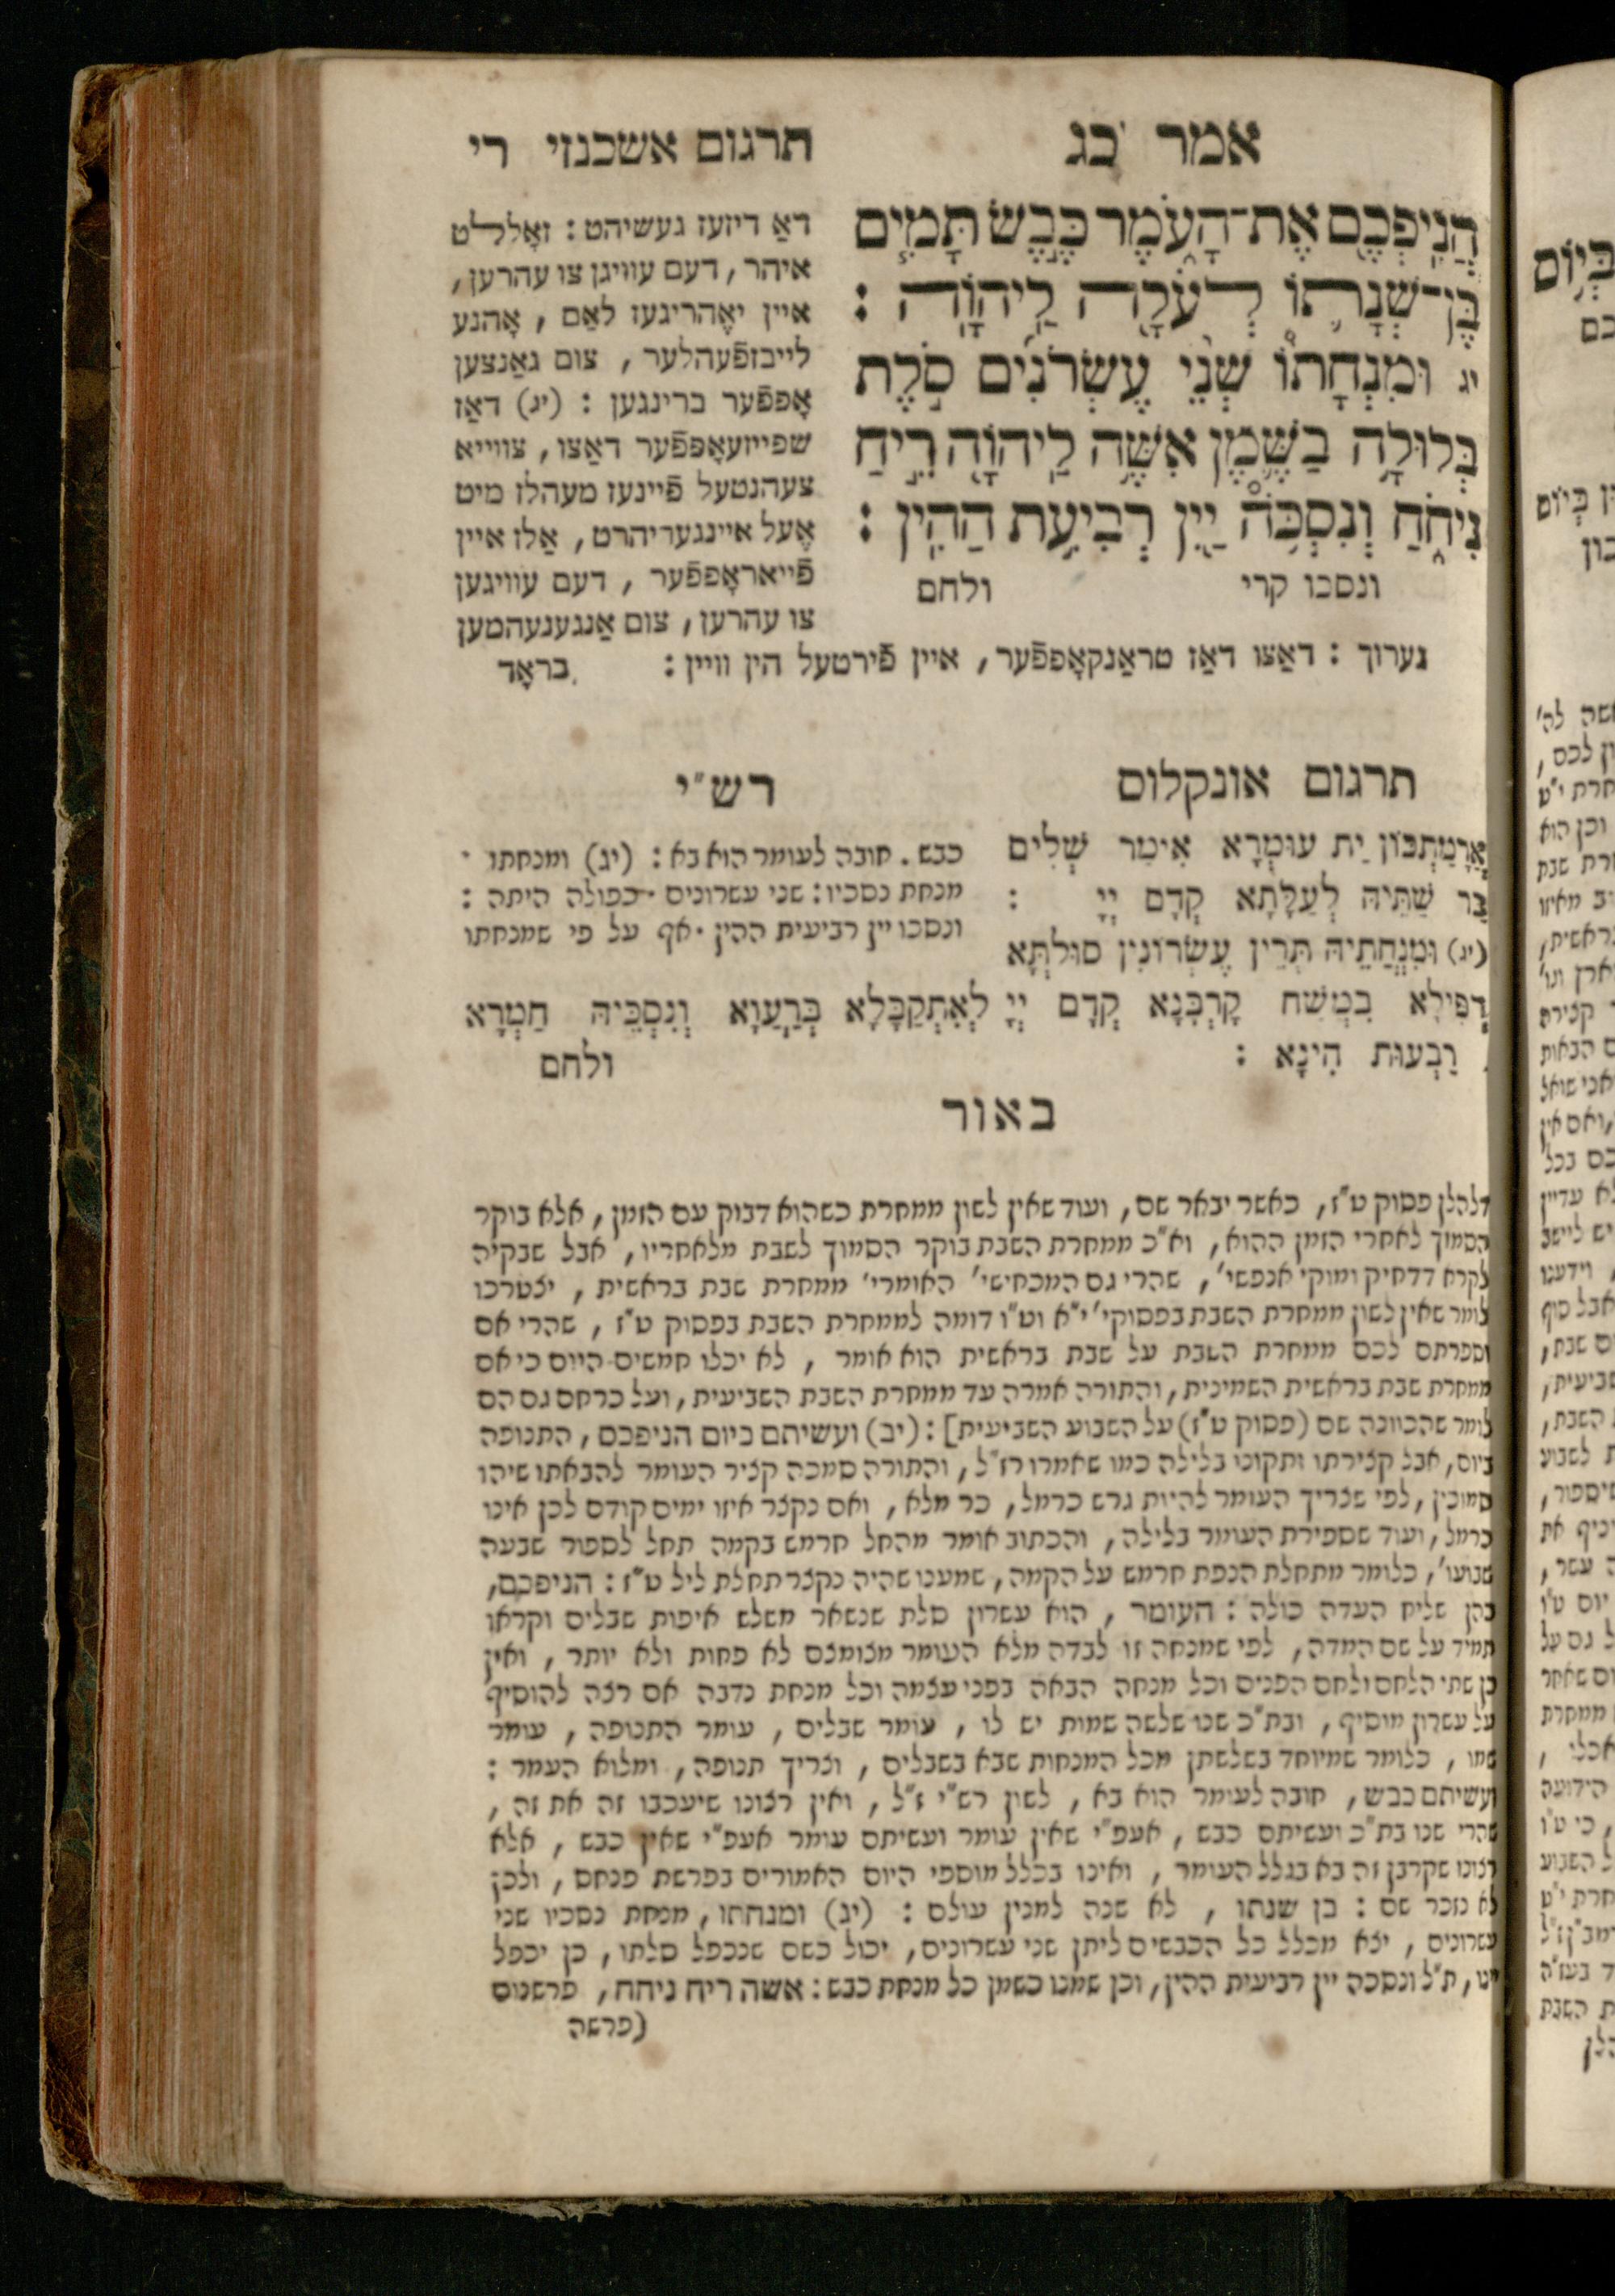 אמר כג
תרגום אשכנזי רי
הֲנִֽיפְכֶ֖ם אֶת־הָעֹ֑מֶר כֶּ֣בֶשׂ תָּמִ֧ים
בֶּן־שְׁנָת֛וֹ לְעֹלָ֖ה לַֽיהוָֽה :
יג וּמִנְחָתוֹ֩ שְׁנֵ֨י עֶשְׂרֹנִ֜ים סֹ֣לֶת
בְּלוּלָ֥ה בַשֶּׁ֛מֶן אִשֶּׁ֥ה לַֽיהוָ֖ה רֵ֣יחַ
נִיחֹ֑חַ וְנִסְכֹּ֥ה יַ֖יִן רְבִיעִ֥ת הַהִֽין :
ונסכו קרי ולחם
דאַ דיזעז געשיהט : זאָללט
איהר , דעם עוויגן צו עהרען ,
איין יאֶהריגעז לאַם , אָהנע
לייבזפֿעהלער , צום גאַנצען
אָפפֿער ברינגען : (יג) דאַז
שפייזעאָפפֿער דאַצו , צווייא
צעהנטעל פֿיינעז מעהלז מיט
אֶעל איינגעריהרט , אַלז איין
פֿייאראָפפֿער , דעם עוויגען
צו עהרען , צום אַנגענעהמען
גערוך : דאַצו דאַז טראַנקאָפפֿער , איין פֿירטעל הין וויין : בראָד
תרגום אונקלוס
אֲרָמַתְכוֹן יָת עוּמְרָא אִימַר שְׁלִים
בַּר שַׁתֵּיהּ לַעֲלָתָא קֳדָם יְיָ :
(יג) וּמִנְחָתֵיהּ תְּרֵין עֶשְׂרוֹנִין סוּלְתָּא
דְּפִילָא בִמְשַׁח קָרְבָּנָא קֳדָם יְיָ לְאִתְקַבָּלָא בְּרַעֲוָא וְנִסְכֵּיהּ חַמְרָא
רַבְעוּת הִינָא : ולחם
רש"י
כבש . חובה לעומר הוא בא : (יג) ומנחתו .
מנחת נסכיו : שני עשרונים . כפולה היתה :
ונסכו יין רביעית ההין . אף על פי שמנחתו
באור
דלהלן פסוק ט"ז , כאשר יבאר שם , ועוד שאין לשון ממחרת כשהוא דבוק עם הזמן , אלא בוקר
הסמוך לאחרי הזמן ההוא , וא"כ ממחרת השבת בוקר הסמוך לשבת מלאחריו , אבל שבקיה
לקרא דדחיק ומוקי אנפשי' , שהרי גם המכחישי' האומרי' ממחרת שבת בראשית , יצטרכו
לומר שאין לשון ממחרת השבת בפסוקי' י"א וט"ו דומה לממחרת השבת בפסוק ט"ז , שהרי אם
וספרתם לכם ממחרת השבת על שבת בראשית הוא אומר , לא יכלו חמשים היום כי אם
ממחרת שבת בראשית השמינית , והתורה אמרה עד ממחרת השבת השביעית , ועל כרחם גם הם
לומר שהכוונה שם (פסוק ט"ז) על השבוע השביעית] : (יב) ועשיתם ביום הניפכם , התנופה
ביום , אבל קצירתו ותקונו בלילה כמו שאמרו רז"ל , והתורה סמכה קציר העומר להבאתו שיהו
סמוכין , לפי שצריך העומר להיות גרש כרמל , כר מלא , ואם נקצר איזו ימים קודם לכן אינו
כרמל , ועוד שספירת העומר בלילה , והכתוב אומר מהחל חרמש בקמה תחל לספור שבעה
שבועו' , כלומר מתחלת הנפת חרמש על הקמה , שמענו שהיה נקצר תחלת ליל ט"ז : הניפכם ,
כהן שליח העדה כולה : העומר , הוא עשרון סלת שנשאר משלש איפות שבלים וקראו
תמיד על שם המדה , לפי שמנחה זו לבדה מלא העומר מצומצם לא פחות ולא יותר , ואין
כן שתי הלחם ולחם הפנים וכל מנחה הבאה בפני עצמה וכל מנחת נדבה אם רצה להוסיף
על עשרון מוסיף , ובת"כ שנו שלשה שמות יש לו , עומר שבלים , עומר התנופה , עומר
שמו , כלומר שמיוחד בשלשתן מכל המנחות שבא בשבלים , וצריך תנופה , ומלוא העמר :
ועשיתם כבש , חובה לעומר הוא בא , לשון רש"י ז"ל , ואין רצונו שיעכבו זה את זה ,
שהרי שנו בת"כ ועשיתם כבש , אעפ"י שאין עומר ועשיתם עומר אעפ"י שאין כבש , אלא
רצונו שקרבן זה בא בגלל העומר , ואינו בכלל מוספי היום האמורים בפרשת פנחס , ולכן
לא נזכר שם : בן שנתו , לא שנה למנין עולם : (יג) ומנחתו , מנחת נסכיו שני
עשרונים , יצא מכלל כל הכבשים ליתן שני עשרונים , יכול כשם שנכפל סלתו , כן יכפל
יינו , ת"ל ונסכה יין רביעית ההין , וכן שמנו כשמן כל מנחת כבש : אשה ריח ניחח , פרשנום
(פרשה